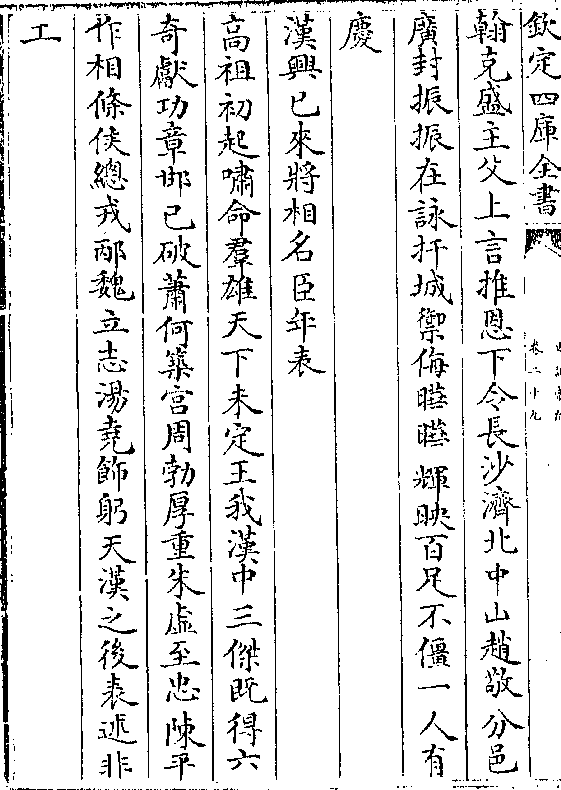 欽定四庫全書
卷二十九
翰克盛主父上言推恩下令長沙濟北中山趙敬分邑
廣封振振在詠扞城禦侮曄曄輝映百足不僵一人有
慶
漢興已來將相名臣年表
高祖初起嘯命羣雄天下未定王我漢中三傑既得六
奇獻功章邯已破蕭何築宫周勃厚重朱虛至忠陳平
作相條侯總戎邴魏立志湯堯飾躬天漢之後表述非
工